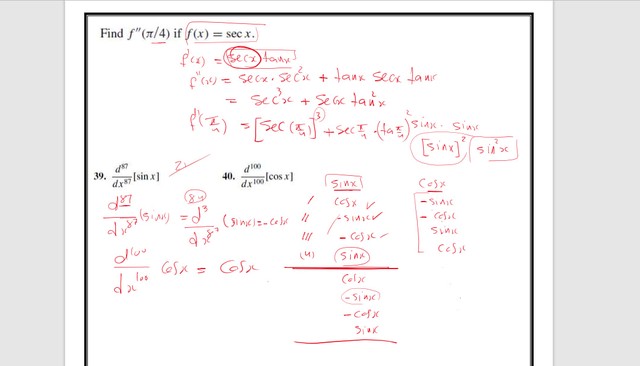 Find f″(π/4) if f(x) = sec x.
f'(x) = secx tanx
f''(x) = secx · sec²x + tanx secx tanx
= sec³x + secx tan²x
f''(π/4) = [sec(π/4)]³ + sec π/4 · (tan π/4)²
sinx · sinx
[sinx]² sin²x
39. d⁸⁷/dx⁸⁷ [sin x] 40. d¹⁰⁰/dx¹⁰⁰ [cos x]
84
d⁸⁷/dx⁸⁷ (sinx) = d³/dx³ (sinx) = -cosx
d¹⁰⁰/dx¹⁰⁰ cosx = cosx
sinx
I cosx ✓
II -sinx ✓
III -cosx ✓
(4) sinx
cosx
-sinx
-cosx
sinx
cosx
-sinx
-cosx
sinx
cosx